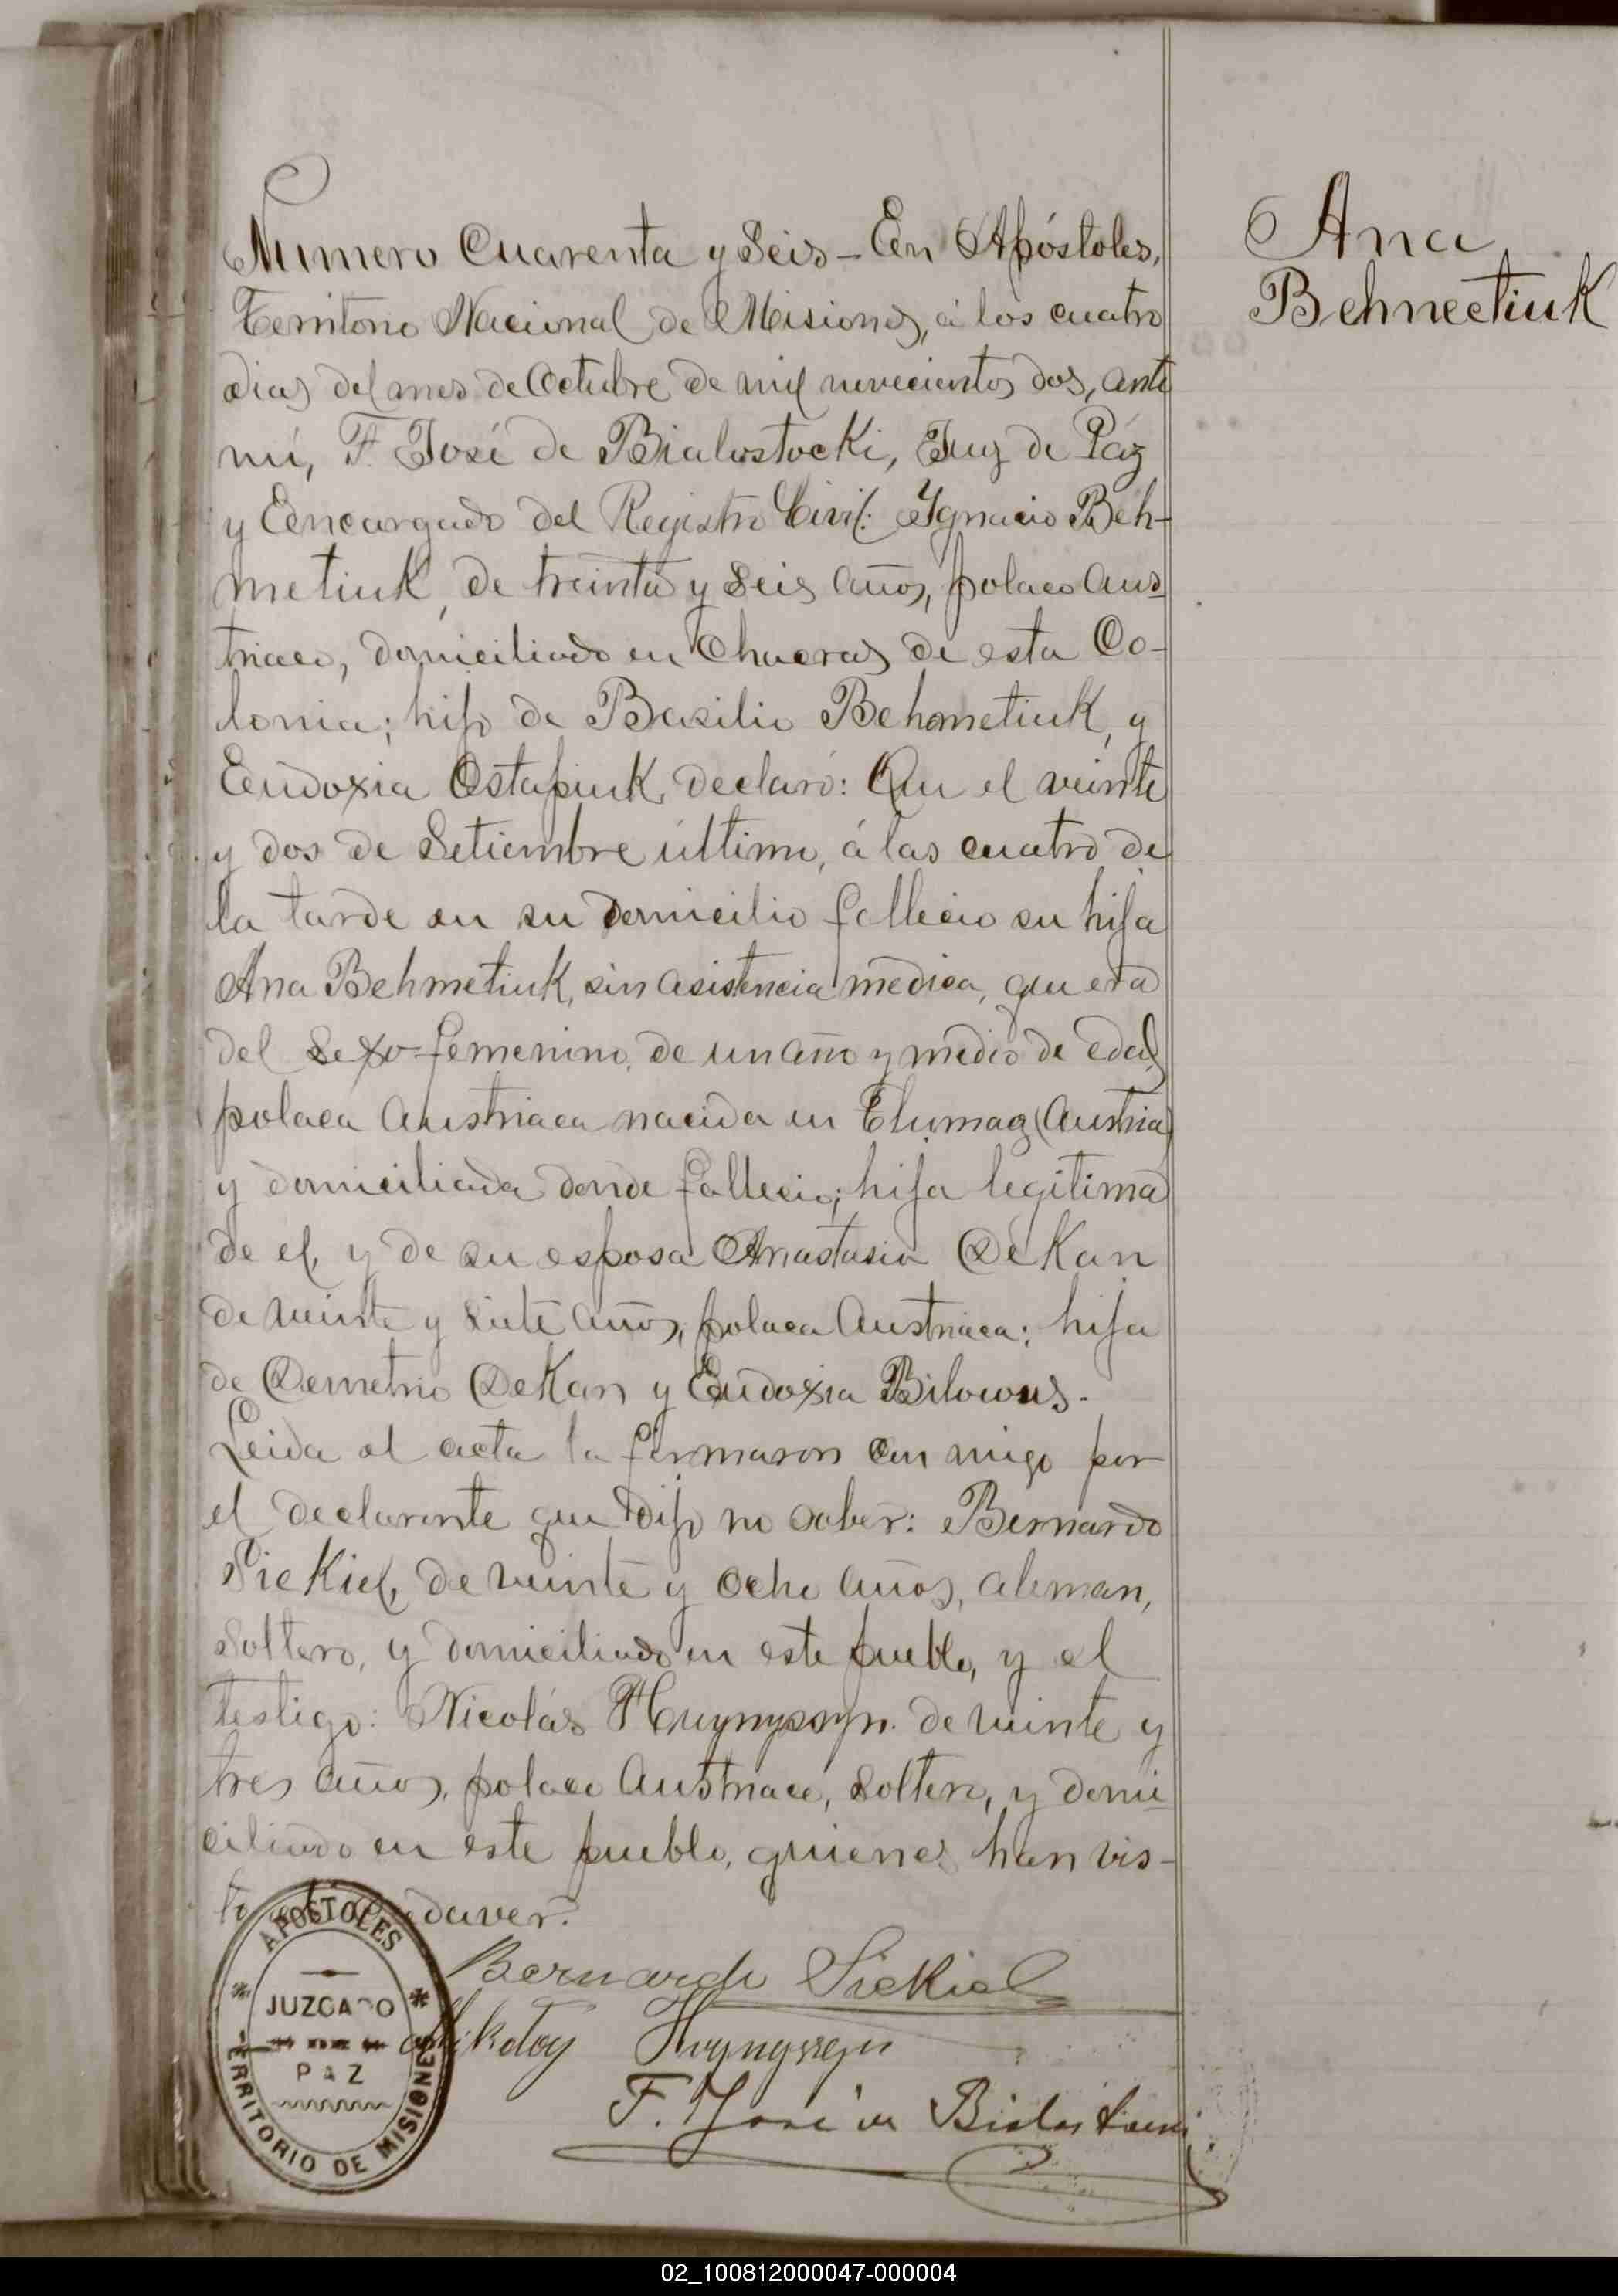 Numero Cuarenta y Seis - En Apóstoles,
Territorio Nacional de Misiones, á los cuatro
dias del mes de Octubre de mil novecientos dos, ante
mi, F. José de Bialostocki, Juez de Páz
y Encargado del Registro Civil: Ygnacio Beh-
metiuk, de treinta y seis años, polaco Aus-
triaco, domiciliado en Chacras de esta Co-
lonia; hijo de Basilio Behometiuk, y
Eudoxia Ostapiuk, declaró: Que el veinte
y dos de Setiembre último, á las cuatro de
la tarde en su domicilio fallecio su hija
Ana Behmetiuk, sin asistencia medica, que era
del Sexo femenino, de un año y medio de edad,
polaca Austriaca nacida en Tlumaz (Austria)
y domiciliada donde fallecio; hija legitima
de el, y de su esposa Anastasia DeKan
de veinte y siete años, polaca Austriaca; hija
de Demetrio DeKan y Eudoxia Bilowus.
Leida el acta la firmaron con migo por
el declarante que dijo no saber: Bernardo
SieKiel, de veinte y ocho años, aleman,
soltero, y domiciliado en este pueblo, y el
testigo: Nicolás de veinte y
tres años, polaco Austriaco, soltero, y domi-
ciliado en este pueblo, quienes han vis-
to el cadaver.
Bernardo SieKiel
F. José de Bialostocki
Ana
Behnectiuk
APOSTOLES
JUZGADO
DE
PAZ
TERRITORIO DE MISIONES
02_100812000047-000004